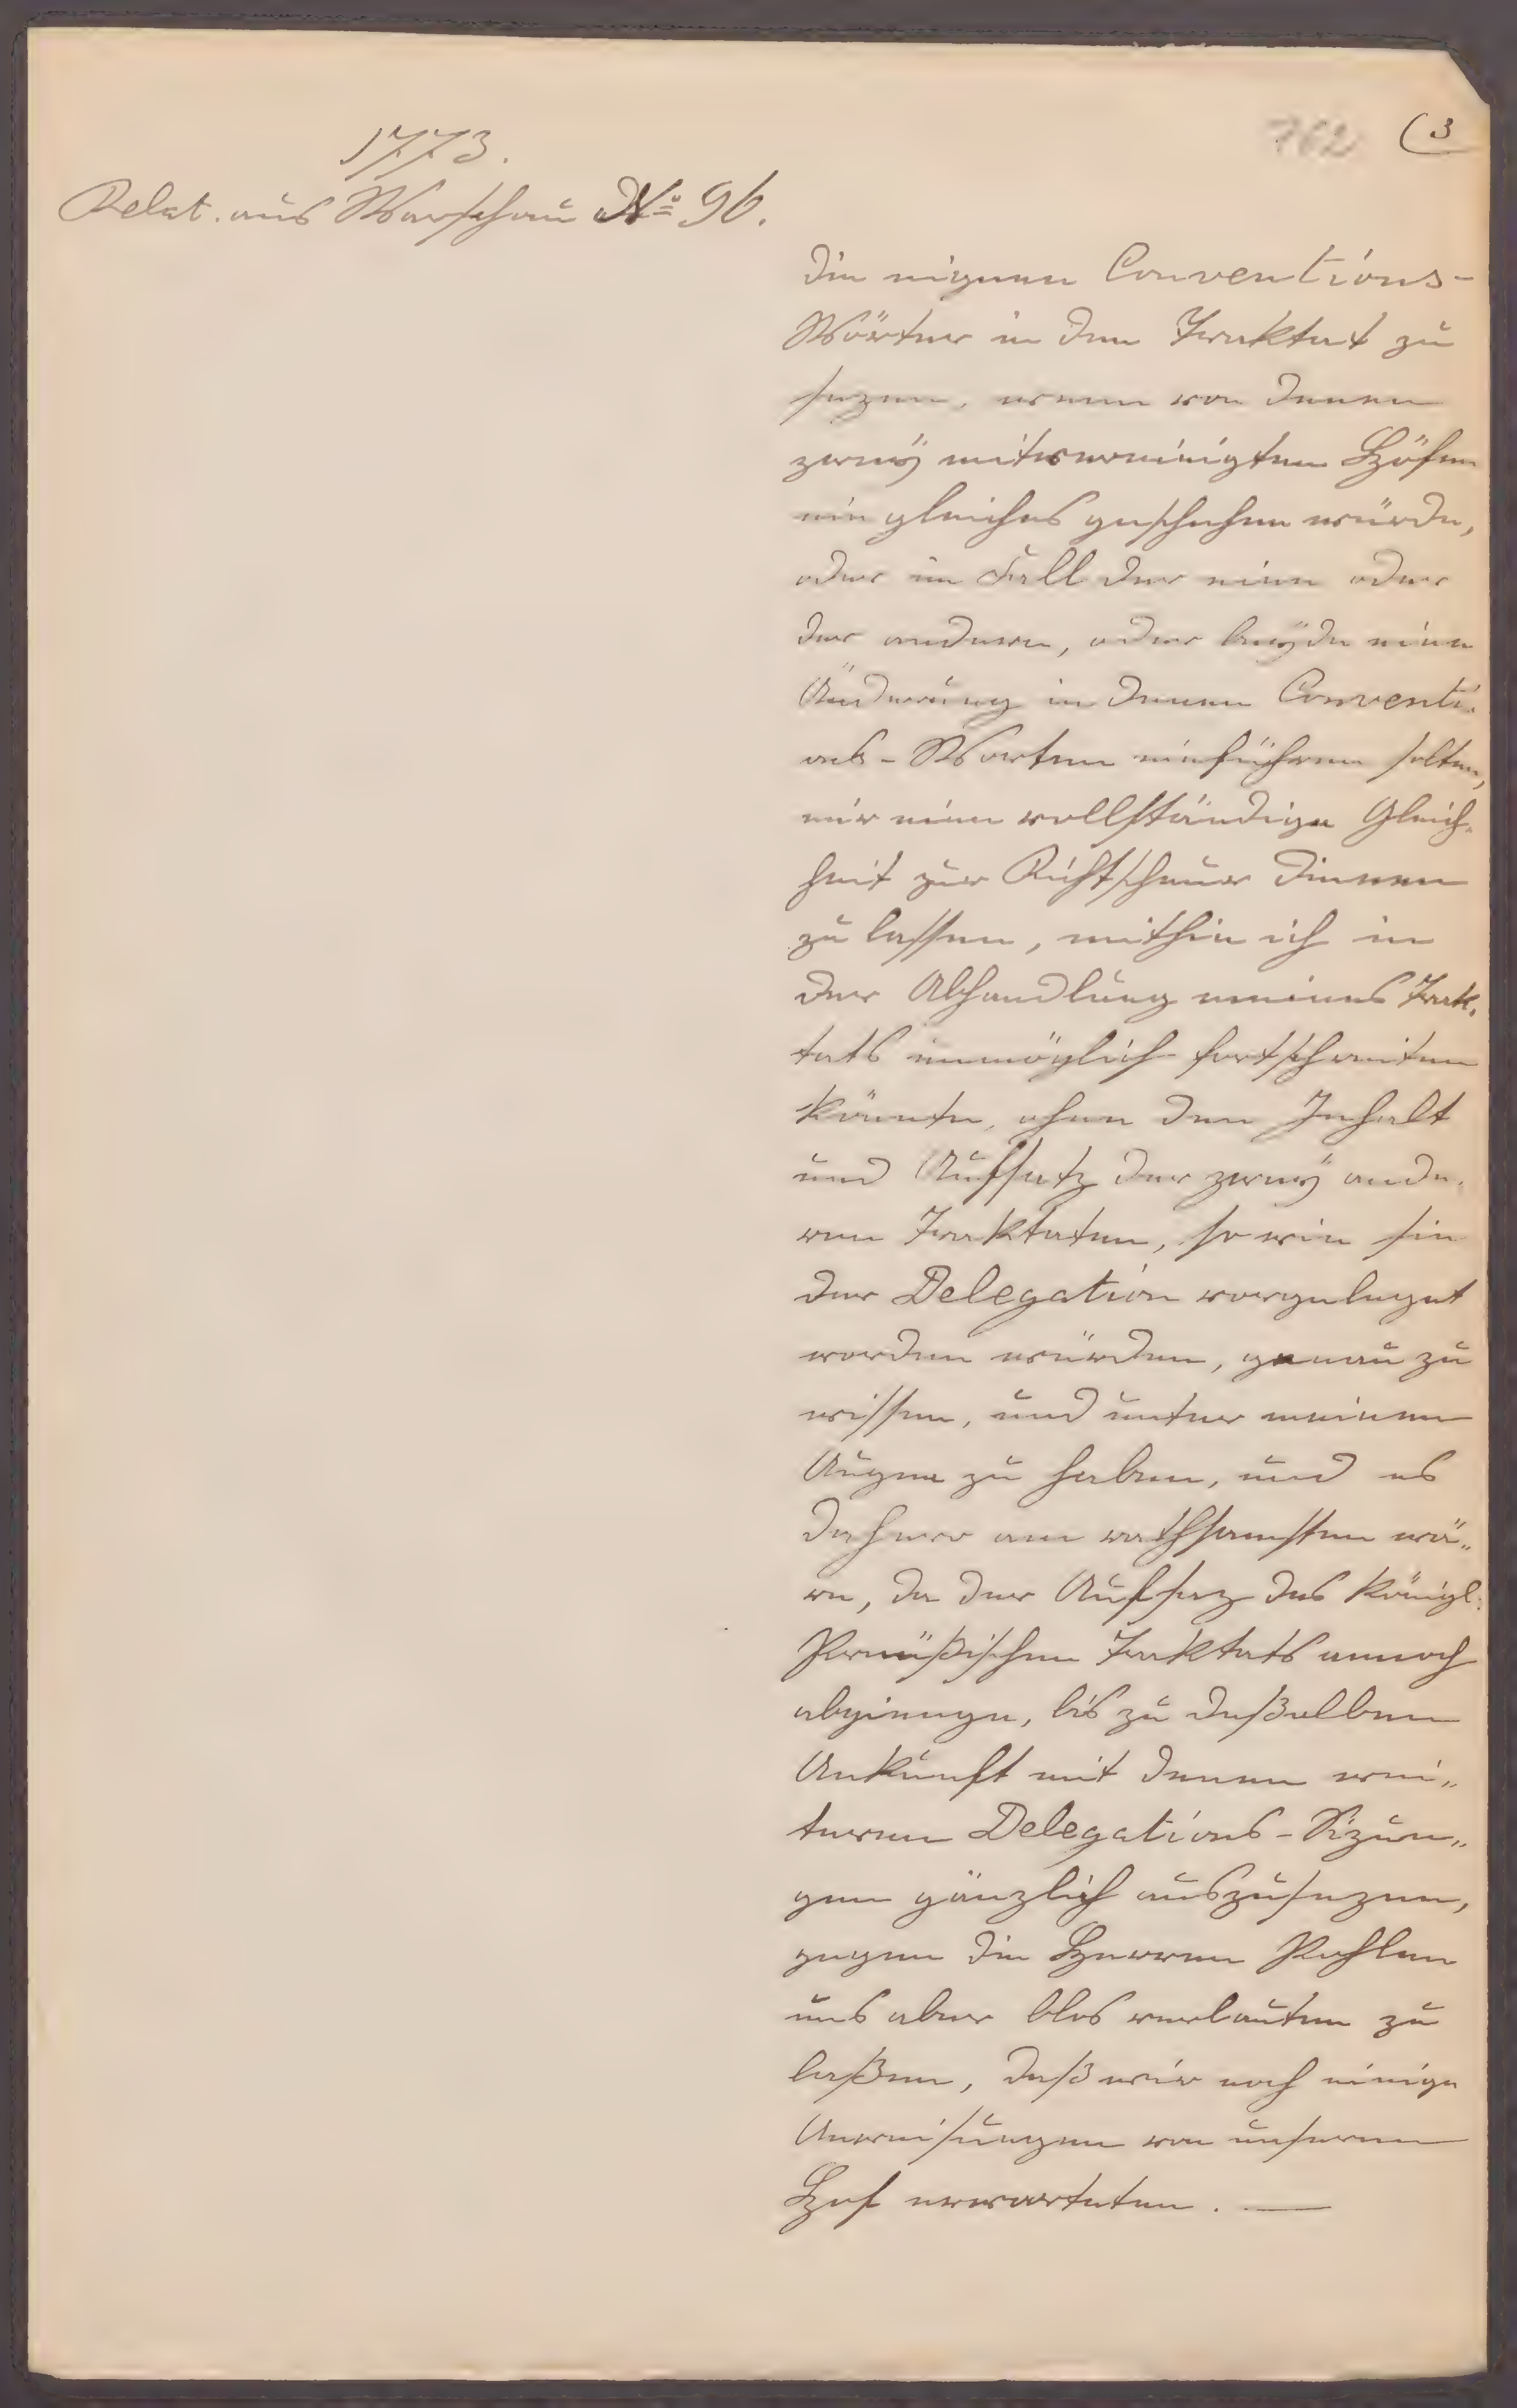 1773.
762 (3
Relat. aus Warschau No 96.
die eigenen Conventions-
Wörter in den Traktat zu
sezen, wenn von denen
zweÿ mitvereinigten Höfen
ein gleiches geschehen würde,
oder im Fall der eine oder
der andere, oder beÿde eine
Änderung in denen Conventi-
ons-Worten einführen solten,
mir eine vollständige Gleich-
heit zur Richtschnur dienen
zu lassen, mithin ich in
der Abhandlung meines Trak-
tats unmöglich fortschreiten
könnte, ohne den Inhalt
und Aufsatz der zweÿ ande-
ren Traktaten, so wie sie
der Delegation vorgeleget
worden würden, genau zu
wissen, und unter meinen
Augen zu haben, und es
daher am rathsamsten wä-
re, da der Aufsaz des Königl:
Preüßischen Traktats annoch
abgienge, bis zu deßelben
Ankunft mit denen wei-
teren Delegations-Sizun-
gen gänzlich auszusezen,
gegen die Herren Pohlen
uns aber blos verlauten zu
laßen, daß wir noch einige
Anweisungen von unserem
Hof erwarteten. —